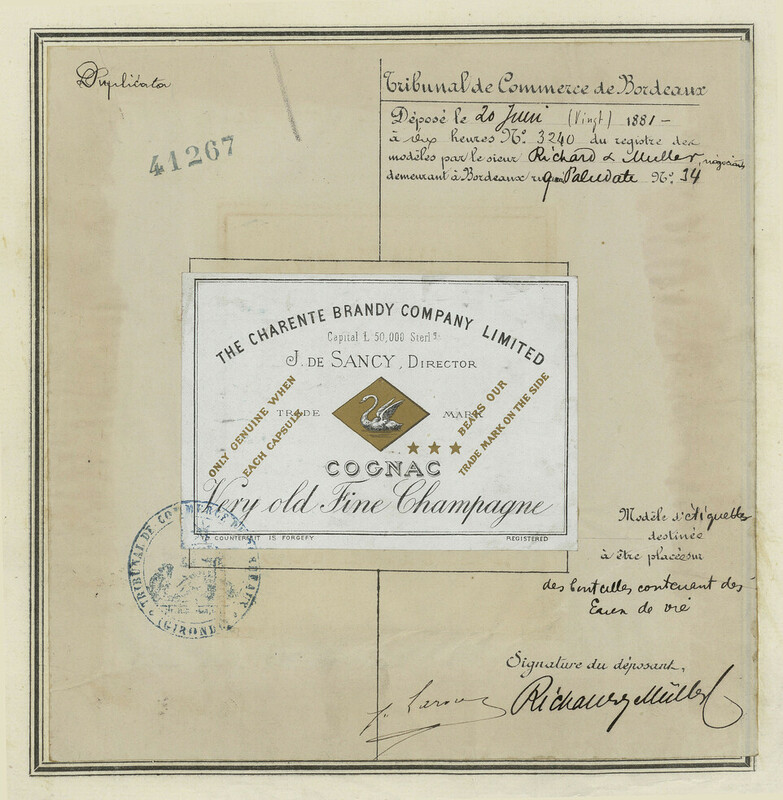 Duplicata
41267
Tribunal de Commerce de Bordeaux
Déposé le 20 Juin (Vingt) 1881 -
à dix heures N° 3240 du registre des
modèles par le sieur Richard & Muller, négociants
demeurant à Bordeaux Paludate N° 34
THE CHARENTE BRANDY COMPANY LIMITED
Capital £ 50,000 Sterl.g
J. DE SANCY, DIRECTOR
ONLY GENUINE WHEN
EACH CAPSULE
TRADE MARK
BEARS OUR
TRADE MARK ON THE SIDE
COGNAC
Very old Fine Champagne
TO COUNTERFEIT IS FORGEFY
REGISTERED
TRIBUNAL DE COMMERCE DE BORDEAUX
(GIRONDE)
Modèle d'étiquettes
destinée
à être placée sur
des bouteilles contenant des
Eaux de vie
Signature du déposant,
Richard & Müller